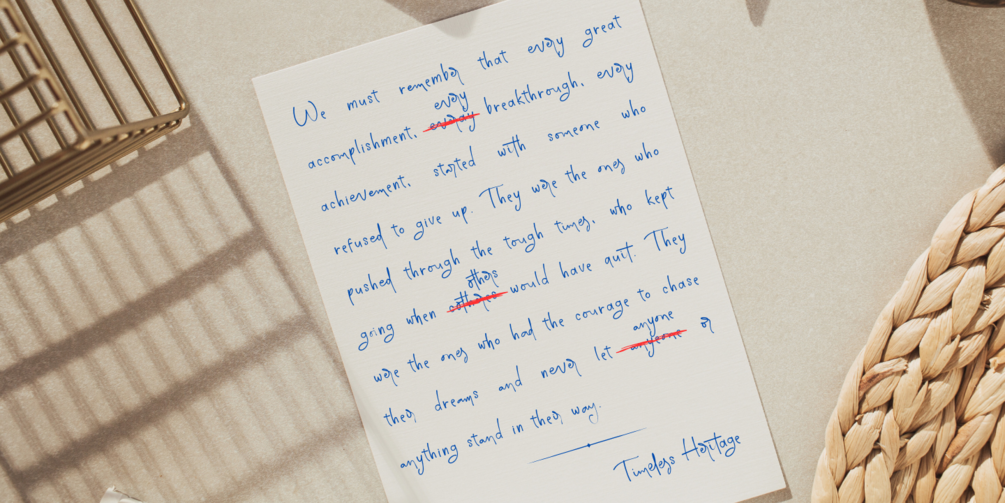 We must remember that every great
accomplishment, every breakthrough, every
achievement, started with someone who
refused to give up. They were the ones who
pushed through the tough times, who kept
going when others would have quit. They
were the ones who had the courage to chase
their dreams and never let anyone or
anything stand in their way.
Timeless Heritage